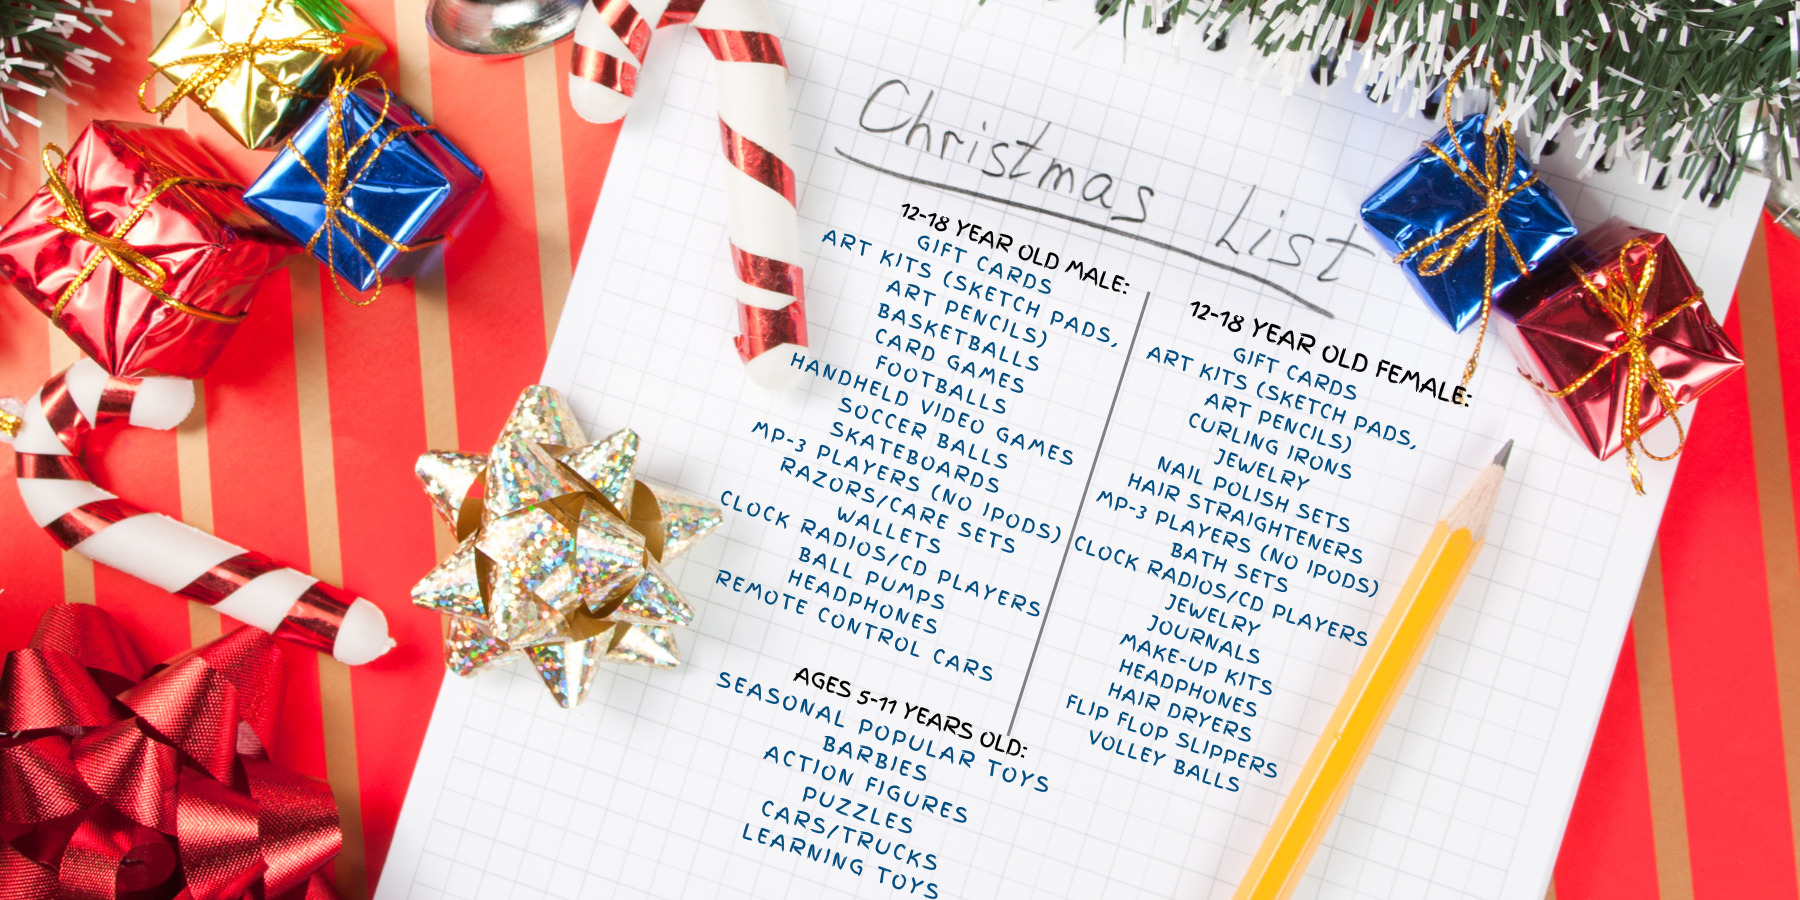 Christmas List
12-18 YEAR OLD MALE:
GIFT CARDS
ART KITS (SKETCH PADS,
ART PENCILS)
BASKETBALLS
CARD GAMES
FOOTBALLS
HANDHELD VIDEO GAMES
SOCCER BALLS
SKATEBOARDS
MP-3 PLAYERS (NO IPODS)
RAZORS/CARE SETS
WALLETS
CLOCK RADIOS/CD PLAYERS
BALL PUMPS
HEADPHONES
REMOTE CONTROL CARS
AGES 5-11 YEARS OLD:
SEASONAL POPULAR TOYS
BARBIES
ACTION FIGURES
PUZZLES
CARS/TRUCKS
LEARNING TOYS
12-18 YEAR OLD FEMALE:
GIFT CARDS
ART KITS (SKETCH PADS,
ART PENCILS)
CURLING IRONS
JEWELRY
NAIL POLISH SETS
HAIR STRAIGHTENERS
MP-3 PLAYERS (NO IPODS)
BATH SETS
CLOCK RADIOS/CD PLAYERS
JEWELRY
JOURNALS
MAKE-UP KITS
HEADPHONES
HAIR DRYERS
FLIP FLOP SLIPPERS
VOLLEY BALLS